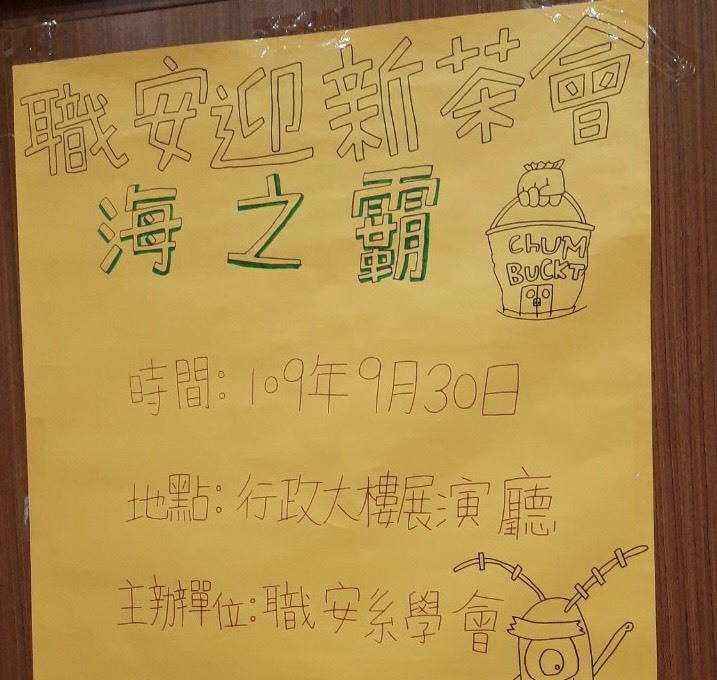 職安迎新茶會
海之霸
CHUM
BUCKT
時間：109年9月30日
地點：行政大樓展演廳
主辦單位：職安系學會